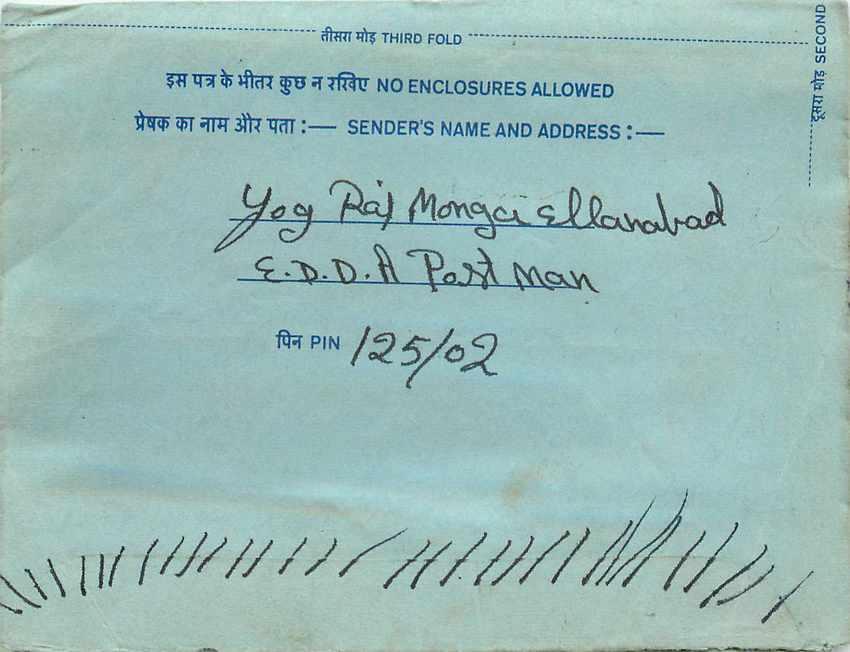 तीसरा मोड़ THIRD FOLD
दूसरा मोड़ SECOND
इस पत्र के भीतर कुछ न रखिए NO ENCLOSURES ALLOWED
प्रेषक का नाम और पता :— SENDER'S NAME AND ADDRESS :—
Yog Raj Monga Ellanabad
E.D.D.A Post Man
पिन PIN 125102